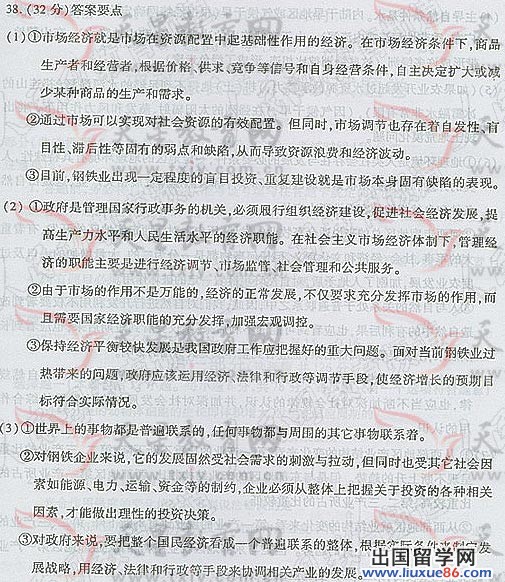 38.(32分)答案要点
(1)①市场经济就是市场在资源配置中起基础性作用的经济。在市场经济条件下,商品
生产者和经营者,根据价格、供求、竞争等信号和自身经营条件,自主决定扩大或减
少某种商品的生产和需求。
②通过市场可以实现对社会资源的有效配置。但同时,市场调节也存在着自发性、盲
目性、滞后性等固有的弱点和缺陷,从而导致资源浪费和经济波动。
③目前,钢铁业出现一定程度的盲目投资、重复建设就是市场本身固有缺陷的表现。
(2)①政府是管理国家行政事务的机关,必须履行组织经济建设,促进社会经济发展,提
高生产力水平和人民生活水平的经济职能。在社会主义市场经济体制下,管理经
济的职能主要是进行经济调节、市场监管、社会管理和公共服务。
②由于市场的作用不是万能的,经济的正常发展,不仅要求充分发挥市场的作用,而
且需要国家经济职能的充分发挥,加强宏观调控。
③保持经济平衡较快发展是我国政府工作应把握好的重大问题。面对当前钢铁业过
热带来的问题,政府应该运用经济、法律和行政等调节手段,使经济增长的预期目
标符合实际情况。
(3)①世界上的事物都是普遍联系的,任何事物都与周围的其它事物联系着。
②对钢铁企业来说,它的发展固然受社会需求的刺激与拉动,但同时也受其它社会因
素如能源、电力、运输、资金等的制约,企业必须从整体上把握关于投资的各种相关
因素,才能做出理性的投资决策。
③对政府来说,要把整个国民经济看成一个普遍联系的整体,根据实际条件来制定发
展战略,用经济、法律和行政等手段来协调相关产业的发展。
出国留学网
www.liuxue86.com